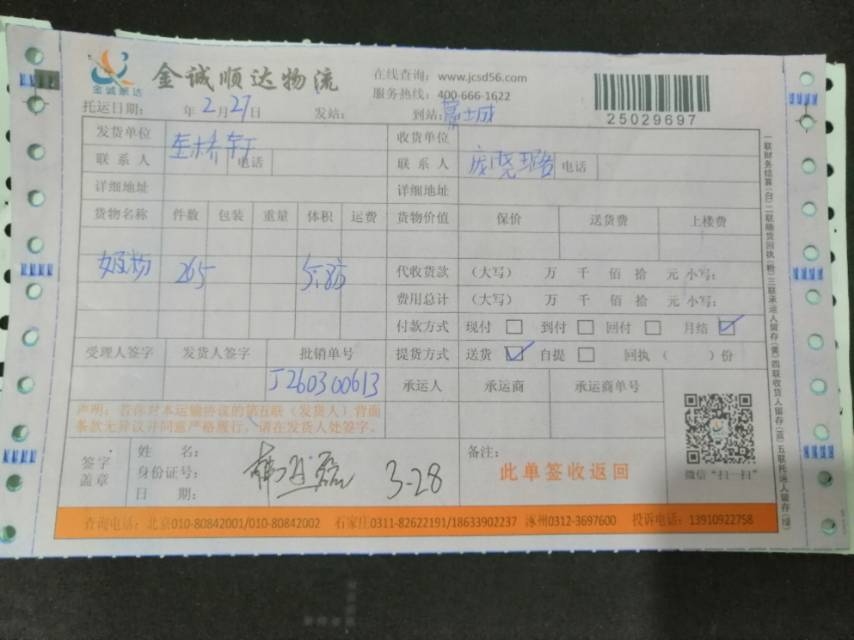 金诚顺达
金诚顺达物流
在线查询：www.jcsd56.com
服务热线：400-666-1622
25029697
托运日期： 年2月27日 发站： 到站：藁城
发货单位 收货单位
联系人 电话 联系人 庞晓璐 电话
详细地址 详细地址
货物名称 件数 包装 重量 体积 运费 货物价值 保价 送货费 上楼费
265 代收货款 （大写） 万 千 佰 拾 元 小写：
费用总计 （大写） 万 千 佰 拾 元 小写：
付款方式 现付 到付 回付 月结
受理人签字 发货人签字 批销单号 提货方式 送货 自提 回执（ ）份
J260300613 承运人 承运商 承运商单号
声明：若你对本运输协议的第五联（发货人）背面
条款无异议并同意严格履行，请在发货人处签字。
签字盖章 姓名： 备注：
身份证号： 此单签收返回
日期： 3-28
微信“扫一扫”
查询电话：北京010-80842001/010-80842002 石家庄0311-82622191/18633902237 涿州0312-3697600 投诉电话：13910922758
一联财务结算（白）二联随货回执（粉）三联承运人留存（黄）四联收货人留存（蓝）五联托运人留存（绿）